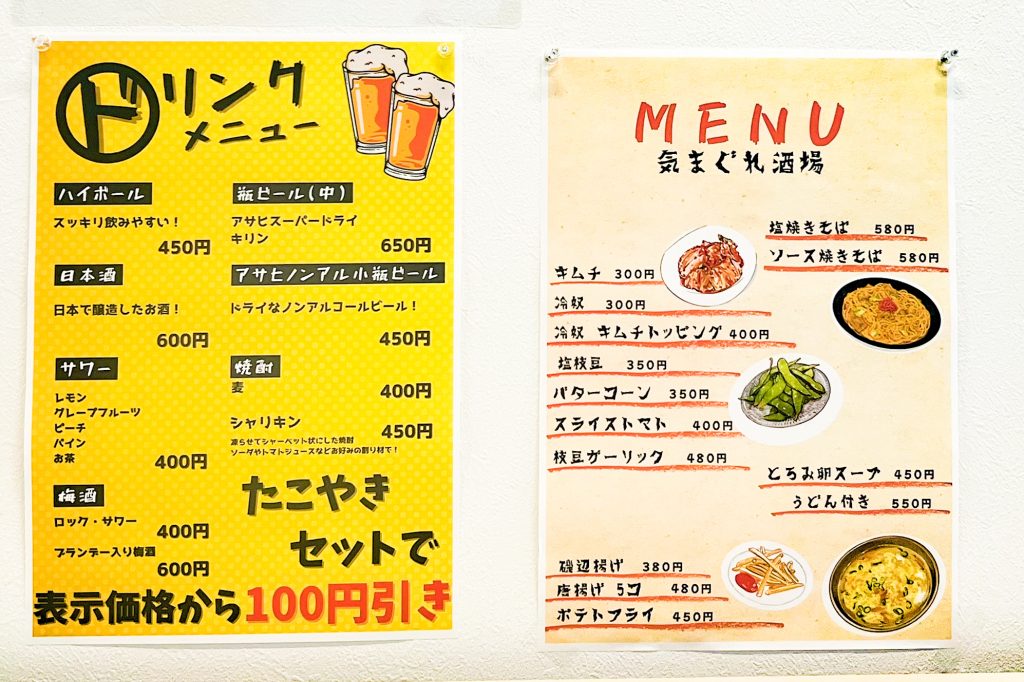 ドリンク
メニュー
ハイボール
スッキリ飲みやすい！
450円
日本酒
日本で醸造したお酒！
600円
サワー
レモン
グレープフルーツ
ピーチ
パイン
お茶
400円
梅酒
ロック・サワー
400円
ブランデー入り梅酒
600円
瓶ビール(中)
アサヒスーパードライ
キリン
650円
アサヒノンアル小瓶ビール
ドライなノンアルコールビール！
450円
焼酎
麦
400円
シャリキン
450円
凍らせてシャーベット状にした焼酎
ソーダやトマトジュースなどお好みの割り材で！
たこやき
セットで
表示価格から100円引き
MENU
気まぐれ酒場
塩焼きそば 580円
ソース焼きそば 580円
キムチ 300円
冷奴 300円
冷奴 キムチトッピング 400円
塩枝豆 350円
バターコーン 350円
スライストマト 400円
枝豆ガーリック 480円
とろみ卵スープ 450円
うどん付き 550円
磯辺揚げ 380円
唐揚げ 5コ 480円
ポテトフライ 450円